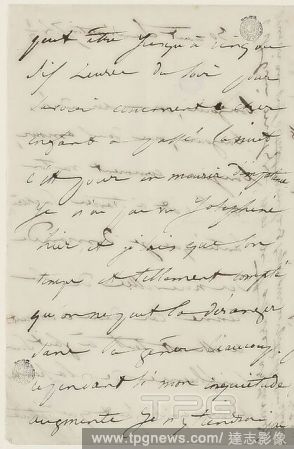 peut être jusqu'à cinq ou
six heures du soir pour
savoir comment ce cher
enfant a passé la nuit
c'est pour en mourir
je n'ai pas vu Joséphine
hier et je sais que son
temps est tellement compté
qu'on ne peut la déranger
sans la gêner beaucoup.
cependant si mon inquiétude
augmente je n'y tiendrai pas
TPG
www.tpgnews.com / 達志影像